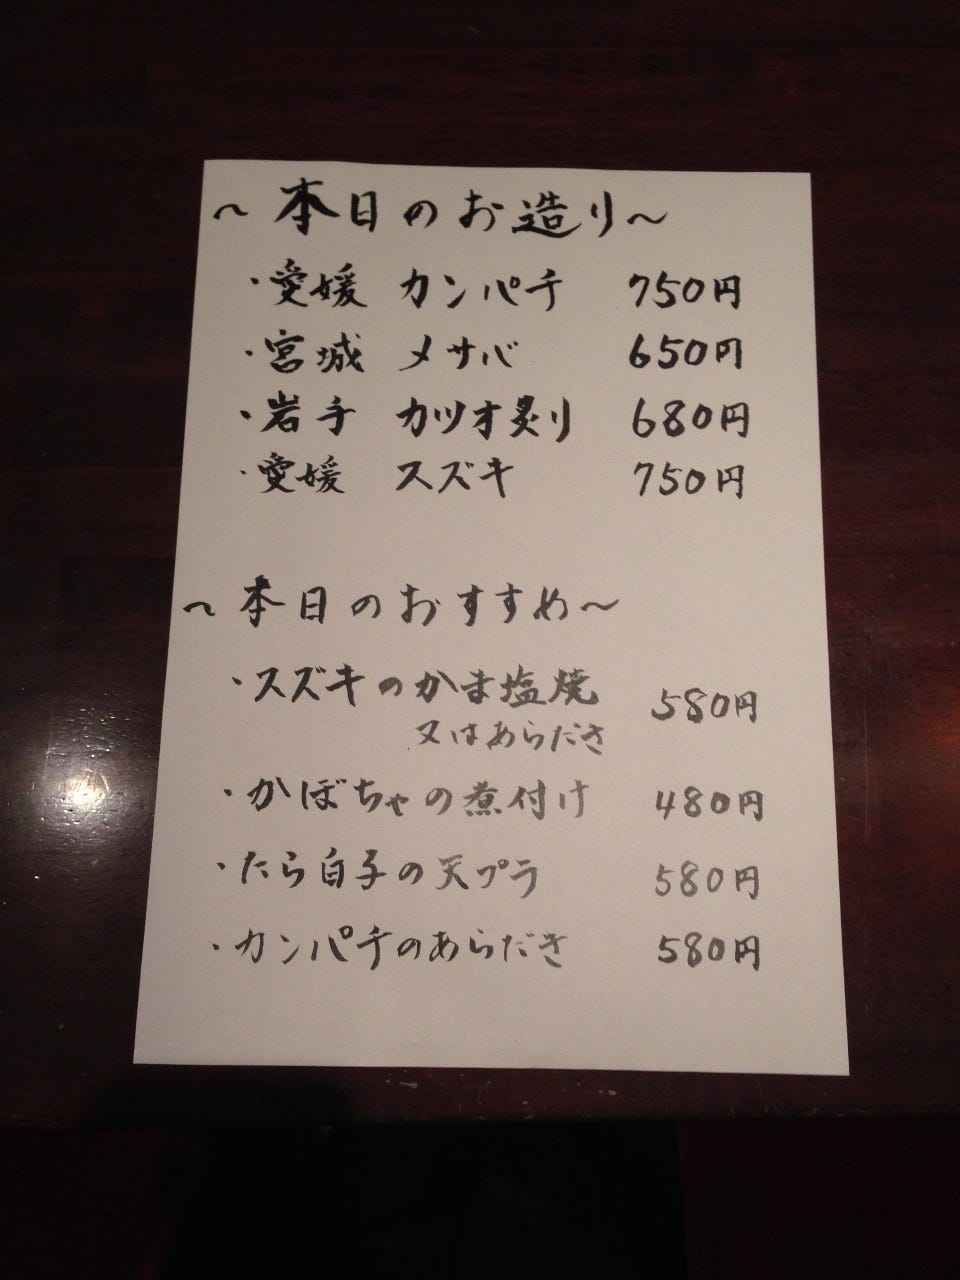 ～本日のお造り～
・愛媛 カンパチ 750円
・宮城 〆サバ 650円
・岩手 カツオ炙り 680円
・愛媛 スズキ 750円
～本日のおすすめ～
・スズキのかま塩焼 580円
又はあらだき
・かぼちゃの煮付け 480円
・たら白子の天プラ 580円
・カンパチのあらだき 580円